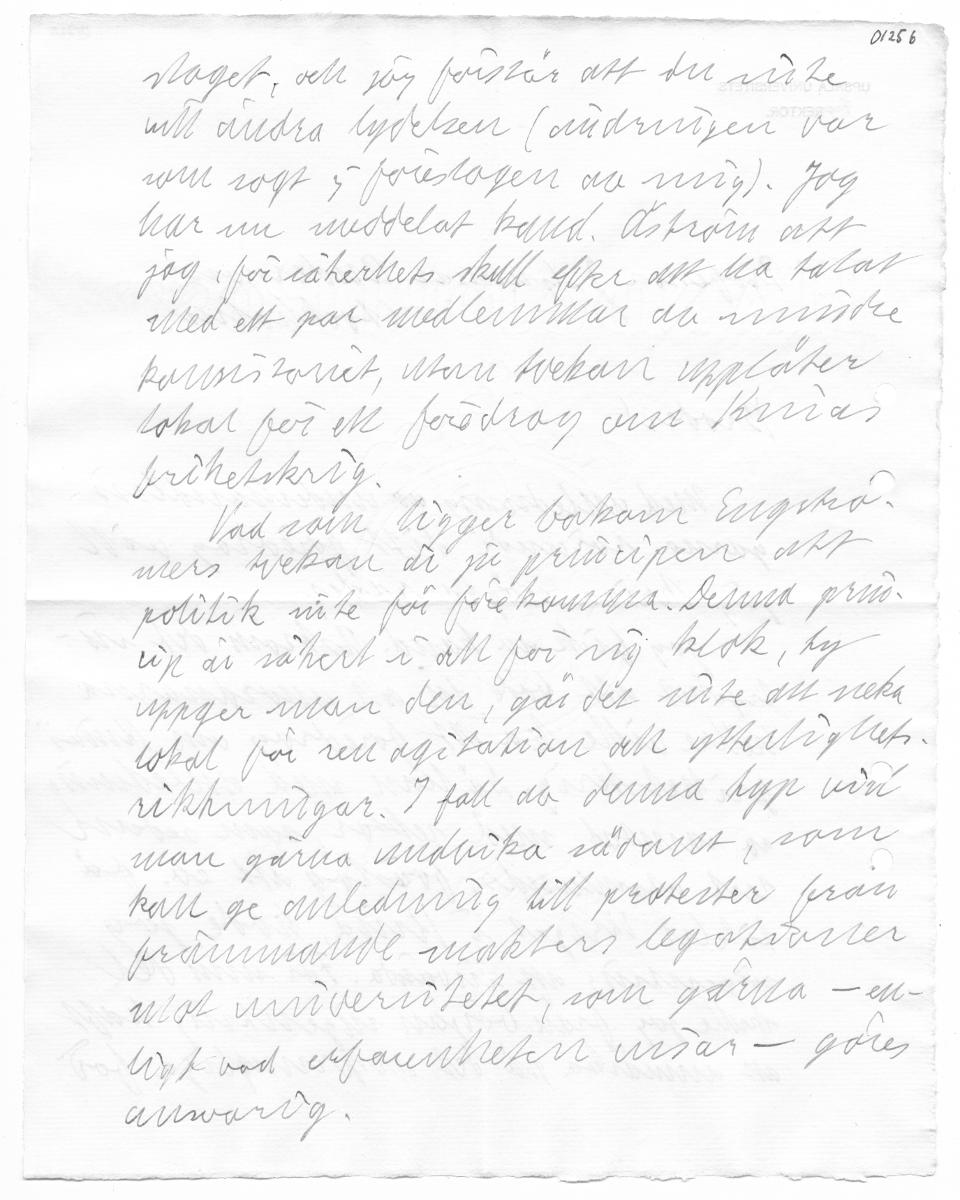 01256
slaget, och jag förstår att du inte
vill ändra lydelsen (ändringen var
som sagt ej föreslagen av mig). Jag
har nu meddelat kand. Åström att
jag, för säkerhets skull efter att ha talat
med ett par medlemmar av mindre
konsistoriet, utan tvekan upplåter
lokal för ett föredrag om Kinas
frihetskrig.
Vad som ligger bakom Engströ-
mers tvekan är ju principen att
politik inte får förekomma. Denna prin-
cip är säkert i och för sig klok, ty
uppger man den, går det inte att neka
lokal för ren agitation och ytterlighets-
riktningar. I fall av denna typ vill
man gärna undvika sådant, som
kan ge anledning till protester från
främmande makters legationer
mot universitetet, som gärna – en-
ligt vad erfarenheten visar – göres
ansvarig.